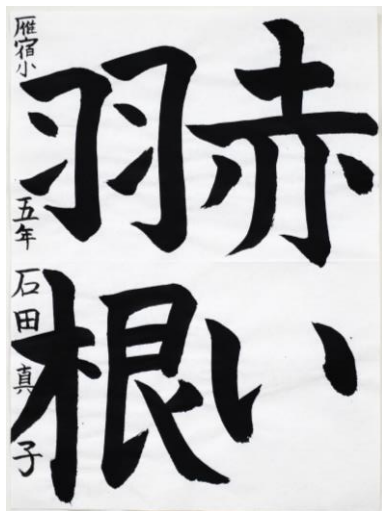 赤い
羽根
雁宿小 五年 石田真子